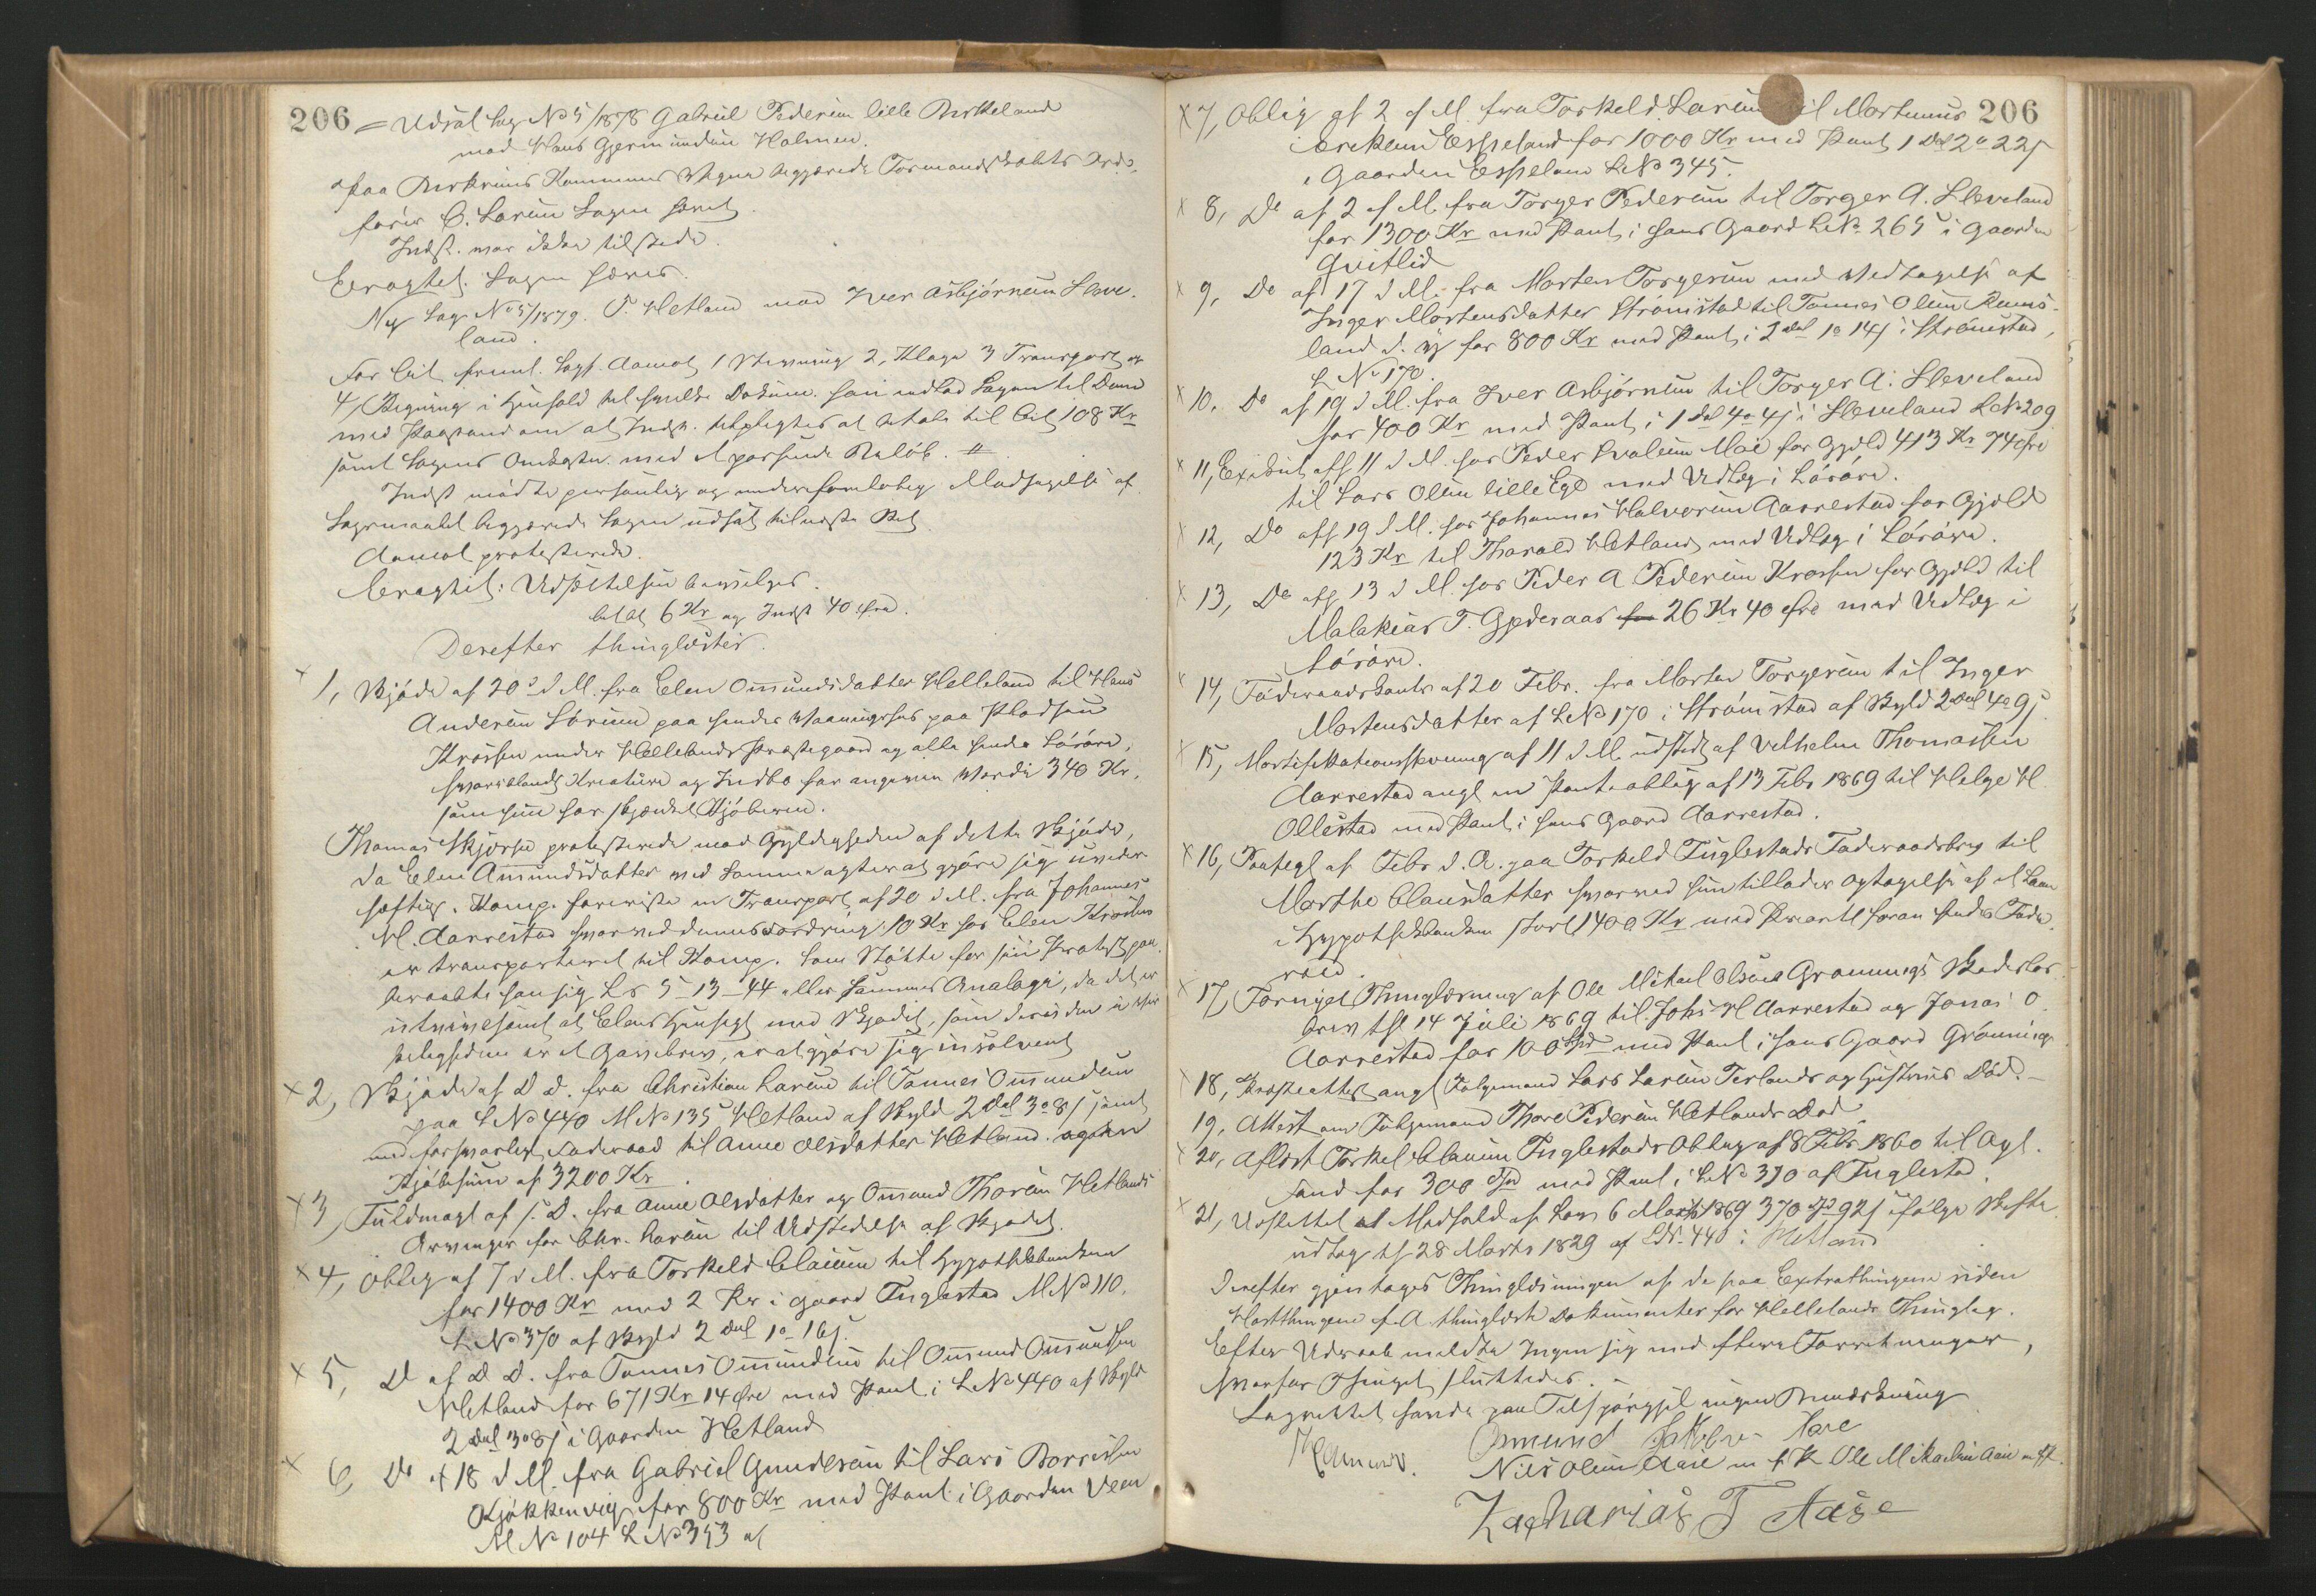 206 = Udsat Sag No 5/1878 Gabriel Pedersen lille Birkeland
mod Hans Gjermundsen Holmen.
paa Birkrems Kommunes Vegne begjærede Formandskabets Ord-
fører C. Larsen Sagen hævet
Indst. var ikke tilstede.
Eragtet: Sagen hæves.
Ny Sag No 5/1879. T. Hetland mod Iver Asbjørnsen Sleve-
land.
For Cit. freml. Sagf. Aamot 1 Stevning 2, Klage 3 Transport og
4, Regning i Henhold til hvilke Dokum. han indlod Sagen til Dom
med Paastand om at Indst. tilpligtes at betale til Cit 108 Kr
samt Sagens Omkostn. med et passende Beløb.
Indst mødte personlig og under foreløbig Modsigelse af
Søgsmaalet begjærede Sagen udsat til næste Ret
Aamot protesterede.
Eragtet: Udsættelsen bevilges.
betalt 6 Kr og Indst 40 Øre.
Derefter thinglæstes.
1, Skjøde af 20 d M. fra Elen Omundsdatter Helleland til Hans
Andersen Sørun paa hendes Vaaningshus paa Pladsen
Krossen under Hellelands Præstegaard og alle hendes Løsøre,
hvoriblandt Kreature og Indbo for angiven Værdi 340 Kr.
som hun har skjænket Kjøberen.
Thomas Skjerpe protesterede mod Gyldigheden af dette Skjøde,
da Elen Amundsdatter ved samme agter at gjøre sig uveder-
hæftig. Komp. foreviste en Transport af 20 d M. fra Johannes
H. Aarrestad hvorved dennes Fordring 10 Kr hos Elen Krossen
er transporteret til Komp. Som Støtte for sin Protest paa-
beraabte han sig Ls 5-13-44 eller sammes Analogi, da det er
utvivlsomt at Elens Hensigt med Skjødet, som desuden i Vir-
keligheden er et Gavebrev, er at gjøre sig insolvent
2, Skjøde af D. D. fra Christian Larsen til Tønnes Omundsen
paa L No 440 M No 135 Hetland af Skyld 2 Dal 3 o 8 s samt
med forsvarligt Føderaad til Anne Olsdatter Hetland.
Kjøbesum af 3200 Kr.
3, Fuldmagt af s. D. fra Anne Olsdatter og Omund Thorsen Hetlands
Arvinger for Chr. Larsen til Udstedelse af Skjødet.
4, Oblig af 7 d M. fra Torkeld Clausen til Hypothekbanken
for 1400 Kr med 2 Pr i Gaard Fuglestad M No 110.
L No 370 af Skyld 2 Dal 1 o 16 s.
5, Do af D. D. fra Tønnes Omundsen til Omund Omundsen
Hetland for 671 Kr 14 Øre med Pant i L No 440 af Skyld
2 Dal 3 o 8 s i Gaarden Hetland
6, Do af 18 d M. fra Gabriel Gundersen til Lars Borresen
Kjøkkenvig for 800 Kr med Pant i Gaarden Veen
M No 104 L No 353 af
7, Oblig af 2 d M. fra Torkeld Larsen til Mortinius 206
Ereksen Espeland for 1000 Kr med Pant 1 Dal 2 o 22 s
i Gaarden Espeland L No 345.
8, Do af 2 d M. fra Torger Pedersen til Torger A. Sleveland
for 1300 Kr med Pant i hans Gaard L No 265 i Gaarden
Gvitlid
9, Do af 17 d M. fra Morten Torgersen med Vedtagelse af
Inger Mortensdatter Strømstad til Tønnes Olsen Rams-
land d. y for 800 Kr med Pant i 2 Dal 1 o 14 s i Strømstad,
L No 170.
10. Do af 19 d M. fra Iver Asbjørnsen til Torger A. Sleveland
for 400 Kr med Pant i 1 Dal 4 o 4 s i Sleveland L No 209
11, Exekut. aff 11 d M. hos Peder Svalesen Moi for Gjæld 413 Kr 74 Øre
til Lars Olsen lille Ege med Udlæg i Løsøre.
12, Do aff 19 d M. hos Johannes Halvorsen Aarrestad for Gjæld
123 Kr til Tharald Hetland med Udlæg i Løsøre.
13, Do aff 13 d M. hos Peder A Pedersen Krossen for Gjæld til
Malakias T. Gyderaas 26 Kr 40 Øre med Udlæg i
Løsøre.
14, Føderaadskontr. af 20 Febr. fra Morten Torgersen til Inger
Mortensdatter af L No 170 i Strømstad af Skyld 2 Dal 4 o 9 s.
15, Mortifikationsstevning af 11 d M. udstedt af Vilhelm Thomassen
Aarrestad angl en Panteoblig af 13 Febr 1869 til Helge H
Ollestad med Pant i hans Gaard Aarrestad.
16, Paategn af Febr d. A. paa Torkeld Fuglestads Føderaadsbrev til
Marthe Clausdatter hvorved hun tillader Optagelse af et Laan
i Hypothekbanken stort 1400 Kr med Prioritet foran hendes Føde-
raad.
17, Fornyet Thinglæsning af Ole Mikael Olsens Grønnings Skadeslos-
brev thl 14 Juli 1869 til Johs H Aarrestad og Jonas O
Aarrestad for 100 Spd med Pant i hans Gaard Grønning
18, Præsteattest angl Følgemand Lars Larsen Terlands og Hustrues Død.
19. Attest om Følgemand Thore Pedersen Hetlands Død.
20, Aflæst Torkel Clausen Fuglestads Oblig af 8 Febr 1860 til Opl.
Fond for 300 Spd med Pant i L No 370 af Fuglestad
21, Udslettet Medhold af Lov 6 Marts 1869 370 Spd 92 s ifølge Skifte
udlæg thl 28 Marts 1829 af LN. 440 i Hetland
Derefter gjentages Thinglæsningen af de paa Extrathingene siden
Høstthinget f. A. thinglæste Dokumenter for Hellelands Thinglag.
Efter Udraab meldte Ingen sig med flere Forretninger,
hvorfor Thinget sluttedes.
Lagrettet havde paa Tilspørgsel ingen Bemærkning
Osmund Jakobsen Aase
Nils Olsen Aase m f P. Ole Mikaelsen Aase m f P.
Zacharias T Aase